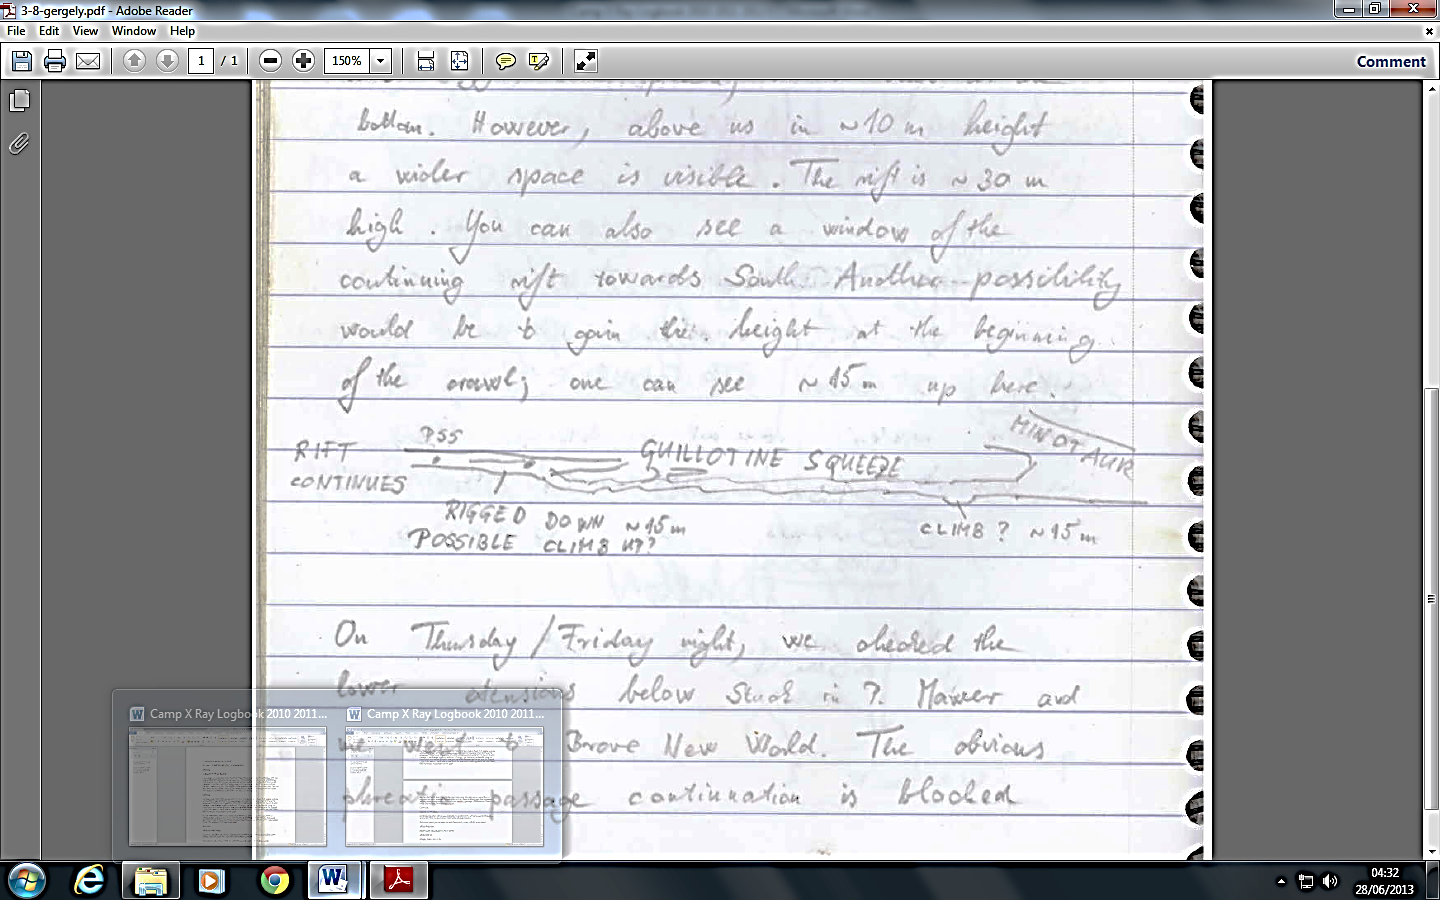 3-8-gergely.pdf - Adobe Reader
File Edit View Window Help
1 / 1 150% Comment
bottom. However, above us in ~10 m height
a wider space is visible. The rift is ~30 m
high. You can also see a window of the
continuing rift towards South. Another possibility
would be to gain the height at the beginning
of the crawl; one can see ~15 m up here.
PSS
MINOTAUR
RIFT
CONTINUES
GUILLOTINE SQUEEZE
RIGGED DOWN ~15 m
POSSIBLE CLIMB UP?
CLIMB? ~15 m
On Thursday/Friday night, we checked the
lower extensions below Stuck in ?. and
me went to Brave New World. The obvious
phreatic passage continuation is blocked
Camp X Ray Logbook 2010 2011...
Camp X Ray Logbook 2010 2011...
04:32
28/06/2013